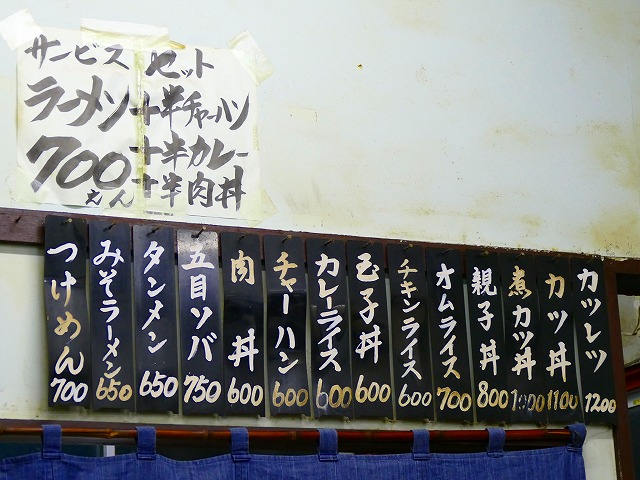 サービスセット
ラーメン+半チャーハン
+半カレー
+半肉丼
700えん
つけめん 700
みそラーメン 650
タンメン 650
五目ソバ 750
肉丼 600
チャーハン 600
カレーライス 600
玉子丼 600
チキンライス 600
オムライス 700
親子丼 800
煮カツ丼 1000
カツ丼 1100
カツレツ 1200